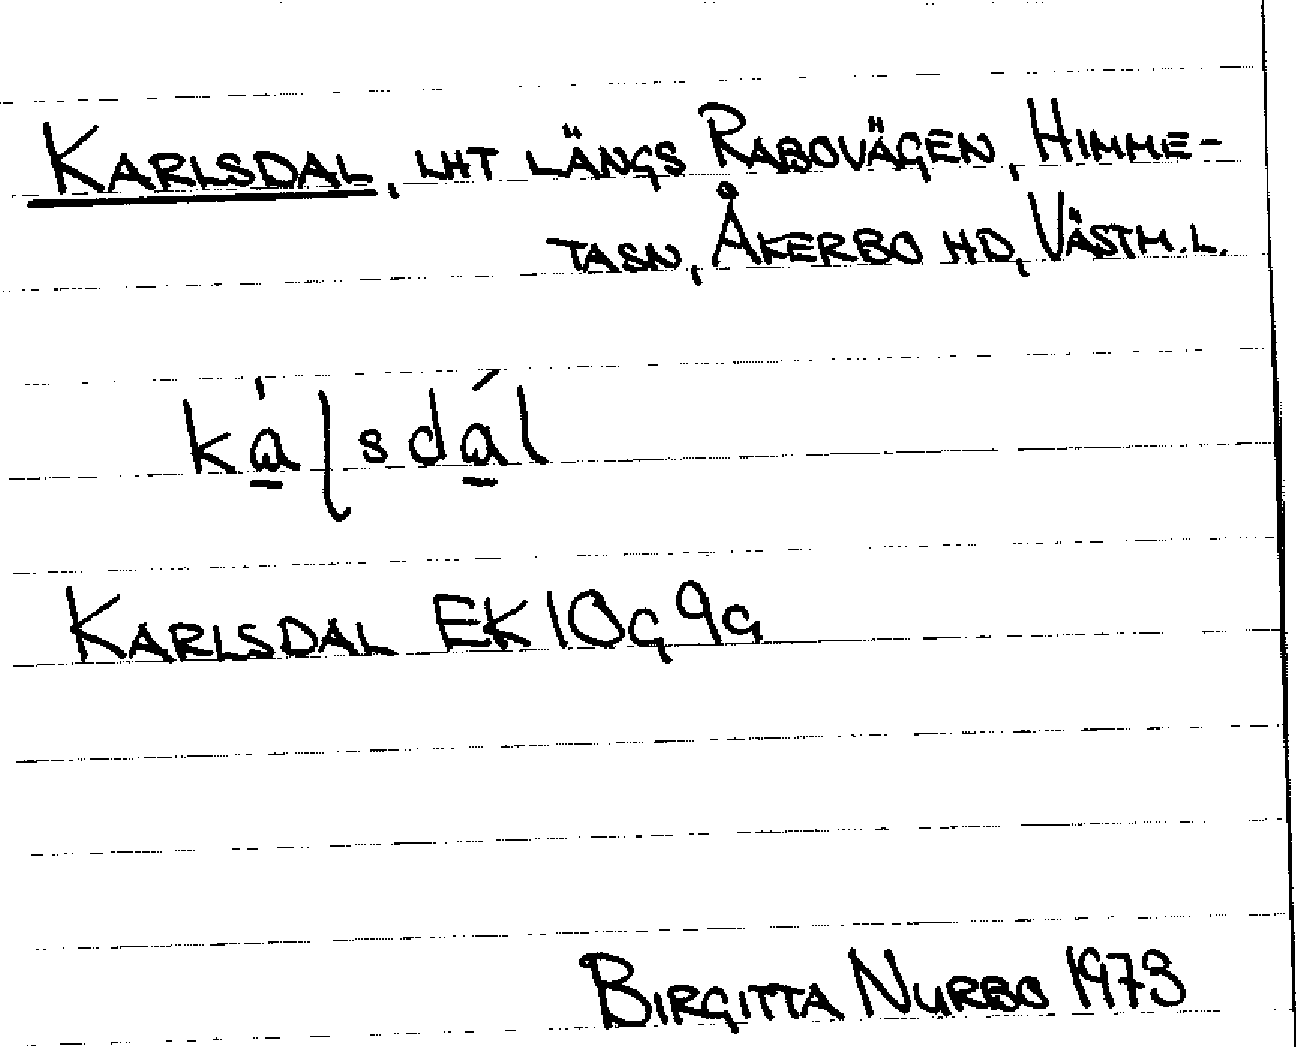 KARLSDAL, LHT LÄNGS RABOVÄGEN, HIMME-
TASN, ÅKERBO HD, VÄSTM.L.
ka̲̍ɭsdá̲l
KARLSDAL EK 10G 9G
BIRGITTA NURBO 1973